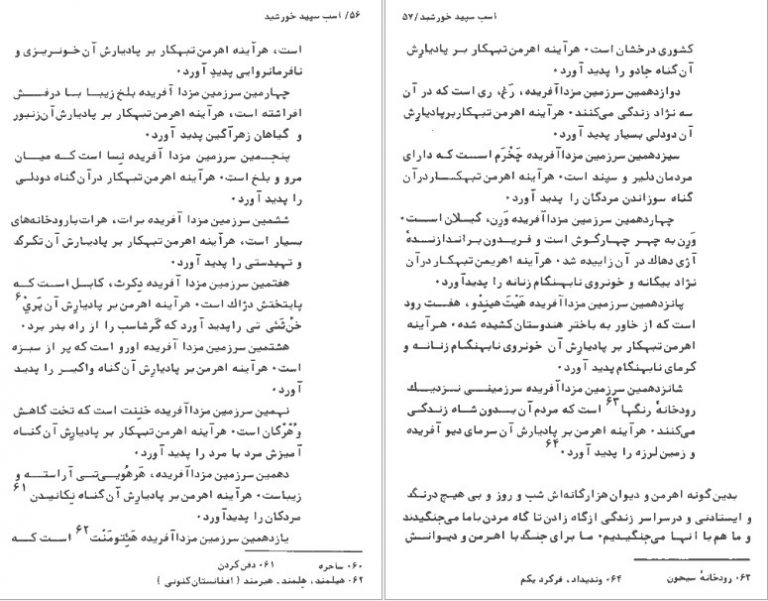 ۵۶/ اسب سپید خورشید
است، هرآینه اهرمن تبهکار بر پادیارش آن خونریزی و
نافرمانروایی پدید آورد۰
چهارمین سرزمین مزدا آفریده بلخ زیبا با درفش
افراشته است، هرآینه اهرمن تبهکار بر پادیارش آن‌زنبور
و گیاهان زهرآگین پدید آورد۰
پنجمین سرزمین مزدا آفریده نِسا است که میان
مرو و بلخ است۰ هرآینه اهرمن تبهکار درآن گناه دودلی
را پدید آورد۰
ششمین سرزمین مزداآفریده برات، هرات‌بارودخانه‌های
بسیار است، هرآینه اهرمن تبهکار بر پادیارش آن تگرگ
و تهیدستی را پدید آورد۰
هفتمین سرزمین مزدا آفرید، دِکرث، کابل است که
پایتختش دژاک است۰ هرآینه اهرمن بر پادیارش آن پَریْ۶
خنْ ثئتی تی راپدید آورد که گرشاسب را از راه بدر برد۰
هشتمین سرزمین مزداآفریده اورو است که پر از سبزه
است۰ هرآینه اهرمن بر پادیارش آن‌گناه واگیر را پدید
آورد۰
نهمین سرزمین مزداآفریده خنِنت است که تخت گاهش
وُهْرْگان است۰ هرآینه اهرمن تبهکار بر پادیارش آن گناه
آمیزش مرد با مرد را پدید آورد۰
دهمین سرزمین مزداآفریده، هَرهْویی‌تی آراسته و
زیباست۰ هرآینه اهرمن بر پادیارش آن گناه نِکانیدن ۶۱
مردگان را پدیدآورد۰
یازدهمین سرزمین مزداآفریده هئِتومَنْت ۶۲ است که
۰۶۰ ساحره
۰۶۱ دفن کردن
۰۶۲ هیلمند، هِلمند۰ هیرمند (افغانستان کنونی)
اسب سپید خورشید/۵۷
کشوری درخشان است۰ هرآینه اهرمن تبهکار بر پادیارش
آن گناه جادو را پدید آورد۰
دوازدهمین سرزمین مزداآفریده، رَغَ، ری است که در آن
سه نژاد زندگی می‌کنند۰ هرآینه اهرمن تبهکاربرپادیارش
آن دودلی بسیار پدید آورد۰
سیزدهمین سرزمین مزداآفریده چَخرَم است که دارای
مردمان دلیر و سپند است۰ هرآینه اهرمن تبهکاردرآن
گناه سوزاندن مردگان را پدید آورد۰
چهاردهمین سرزمین مزداآفریده وَرِن، گیلان است۰
وَرِن به چهر چهارگوش است و فریدون براندازندهٔ
آژی دهاک در آن زاییده شد۰ هرآینه اهریمن تبهکار درآن
نژاد بیگانه و خونروی نابهنگام زنانه را پدیدآورد۰
پانزدهمین سرزمین مزداآفریده هَیْتَ هیندو، هفت رود
است که از خاور به باختر هندوستان کشیده شده۰ هرآینه
اهرمن تبهکار بر پادیارش آن خونروی نابهنگام زنانه و
گرمای نابهنگام پدید آورد۰
شانزدهمین سرزمین مزداآفریده سرزمینی نزدیک
رودخانهٔ رنگها ۶۳ است که مردم آن بدون شاه زندگی
می‌کنند۰ هرآینه اهرمن بر پادیارش آن سرمای دیو آفریده
و زمین لرزه را پدید آورد۰ ۶۴
بدین گونه اهرمن و دیوان هزارگانه‌اش شب و روز و بی هیچ درنگ
و ایستادنی و درسراسر زندگی ازگاه زادن تا گاه مردن باما می‌جنگیدند
و ما هم با آنها می‌جنگیدیم۰ ما برای جنگ با اهرمن و دیوانش
۰۶۳ رودخانهٔ سیحون
۰۶۴ وندیداد، فرگرد یکم